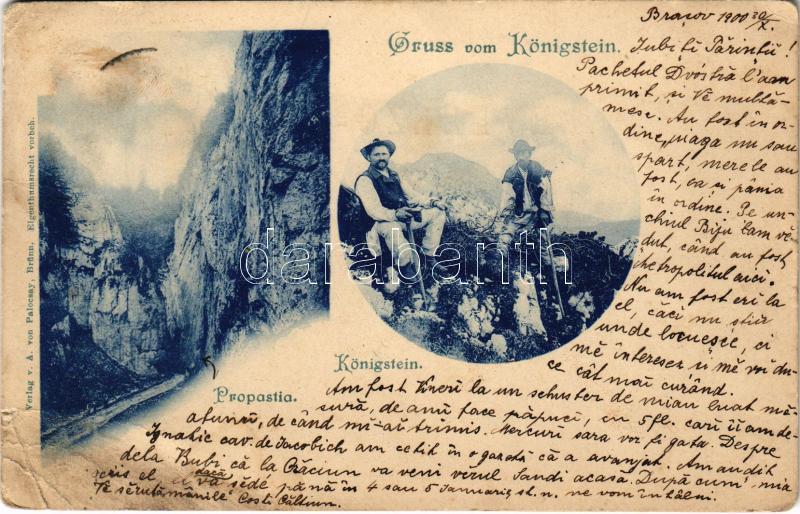 Brașov 1900 20/X.
Gruss vom Königstein.
Iubiți Părinții!
Pachetul Dvóstră l'am
primit, și Vĕ mulță-
mesc. Au fost în or-
dine, piaga nu sau
spart, merele au
fost, ca și pânia
în ordine. Pe un-
chiul Biju l'am vĕ-
dut, când au fost
Metropolitul aici.
Nu am fost eri la
el, căci nu știu
unde locuesce, ci
mĕ interesez și mĕ voi du-
ce cât mai curând.
Königstein.
Propastia.
Am fost Vineri la un schuster de miau luat mĕ-
sură, de anu face păpuci, cu 5 fl. cari ii am de-
atunci, de când mi-ai trimis. Mercuri sara vor fi gata. Despre
Ignatie cav. de Iacobich am cetit în o gazetă că a avanjat. Am audit
dela Bubi că la Crăciun va veni vĕrul Sandi acasă. După cum mia
scris el dacă va ședé până în 4 sau 5 Ianuariŭ st. n. ne vom întâlni.
Te sĕrută mânile Costi Căltiun.
Verlag v. A. von Palocsay, Brünn. Eigenthumsrecht vorbeh.
darabanth